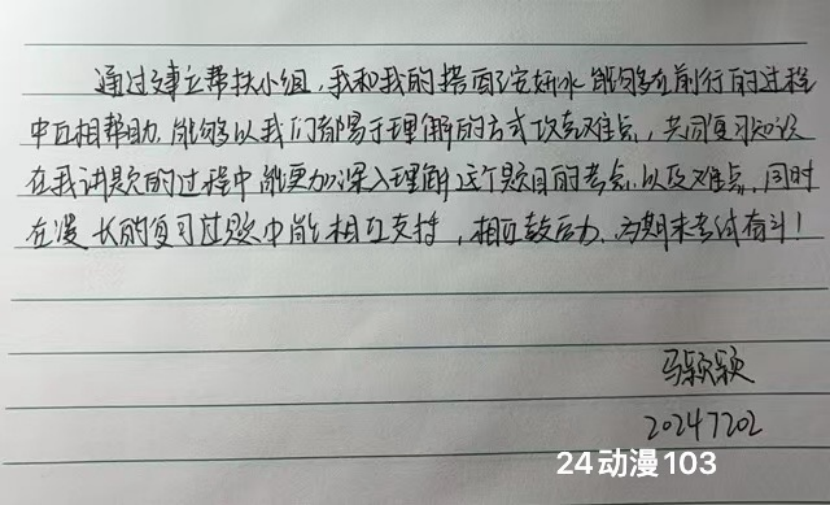 通过建立帮扶小组,我和我的搭面安妍冰能够在前行的过程
中互相帮助,能够以我们都易于理解的方式攻克难点,共同复习知识
在我讲题的过程中能更加深入理解这个题目的考点以及难点,同时
在漫长的复习过题中能相互支持,相互鼓励,为期末考试奋斗!
马颖颖
20247202
24动漫103